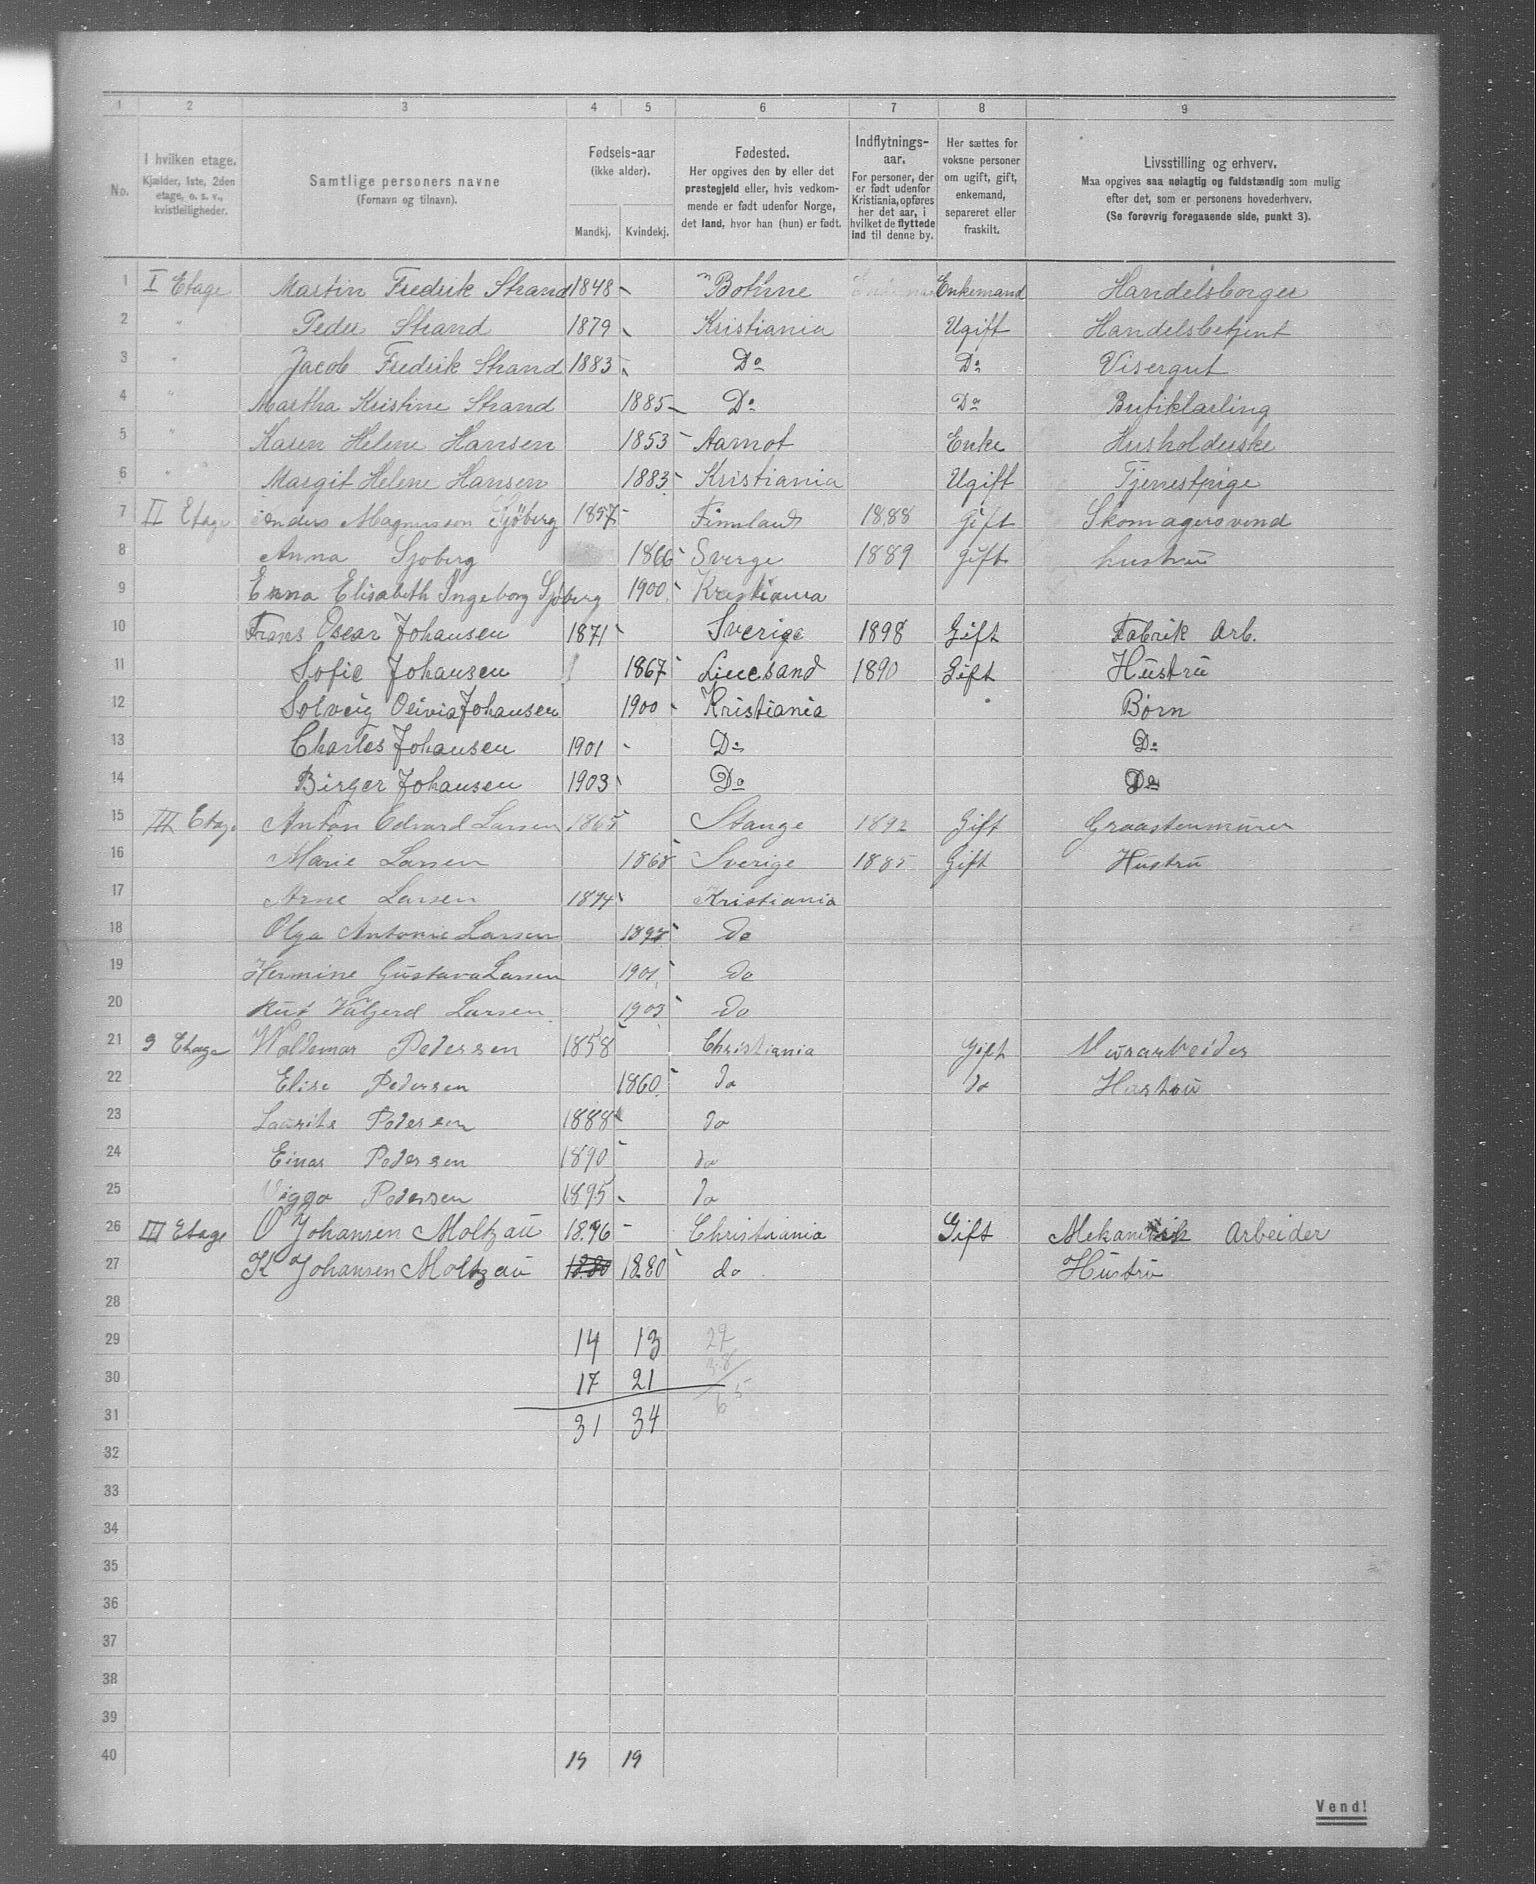 1 2 3 4 5 6 7 8 9
No.
I hvilken etage.
Kjælder, 1ste, 2den
etage, o. s. v.,
kvistleiligheder.
Samtlige personers navne
(Fornavn og tilnavn).
Fødsels-aar
(ikke alder).
Mandkj. Kvindekj.
Fødested.
Her opgives den by eller det
prestegjeld eller, hvis vedkom-
mende er født udenfor Norge,
det land, hvor han (hun) er født.
Indflytnings-
aar.
For personer, der
er født udenfor
Kristiania, opføres
her det aar, i
hvilket de flyttede
ind til denne by.
Her sættes for
voksne personer
om ugift, gift,
enkemand,
separeret eller
fraskilt.
Livsstilling og erhverv.
Maa opgives saa nøiagtig og fuldstændig som mulig
efter det, som er personens hovederhverv.
(Se forøvrig foregaaende side, punkt 3).
1 I Etage Martin Fredrik Strand 1848 - Bothne Enkemand Handelsborger
2 " Peder Strand 1879 Kristiania Ugift Handelsbetjent
3 " Jacob Fredrik Strand 1883 Do Do Visergut
4 " Martha Kristine Strand 1885 Do Do Butiklærling
5 " Karen Helene Hansen 1853 Aamot Enke Husholderske
6 " Margit Helene Hansen 1883 Kristiania Ugift Tjenestpige
7 II Etage Anders Magnusson Sjöberg 1857 Finnland 1888 Gift Skomagersvend
8 Anna Sjoberg 1866 Sverge 1889 gift hustru
9 Enna Elisabeth Ingeborg Sjöberg 1900 Krastiania
10 Frans Oscar Johansen 1871 Sverige 1898 Gift Fabrik Arb.
11 Sofie Johansen 1867 Lillesand 1890 Gift Hustru
12 Solveig Olivia Johansen 1900 Kristiania Børn
13 Charles Johansen 1901 - Do Do
14 Birger Johansen 1903 Do Do
15 III Etage Anton Edvard Larsen 1865 Stange 1892 Gift Graastenmurer
16 Marie Larsen 1868 Sverige 1885 Gift Hustru
17 Arne Larsen 1894 Kristiania
18 Olga Antonie Larsen 1898 Do
19 Hermine Gustava Larsen 1901 Do
20 Rut Valgerd Larsen 1903 Do
21 3 Etage Woldemar Pedersen 1858 Christiania Gift Murarbeider
22 Elise Pedersen 1860 do do Hustru
23 Laurits Pedersen 1888 do
24 Einar Pedersen 1890 do
25 Viggo Pedersen 1895 do
26 III Etage O Johansen Moltzau 1876 - Christiania Gift Mekanisk Arbeider
27 K Johansen Moltzau 1880 1880 do Hustru
28
29 14 13 27
30 17 21 38
31 31 34 65
32
33
34
35
36
37
38
39
40 19 19
Vend!